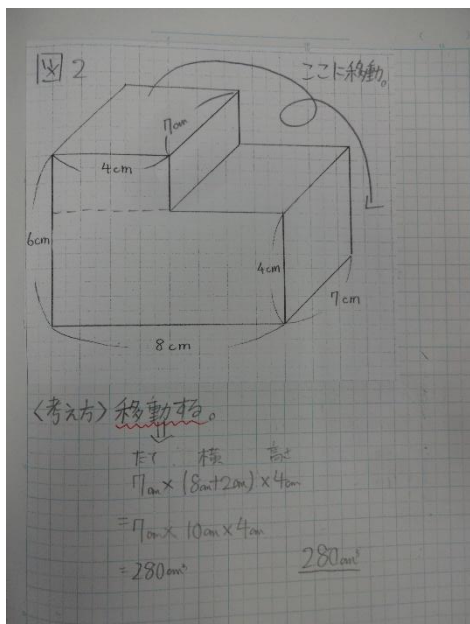 図2
ここに移動。
7cm
4cm
6cm
4cm
7cm
8cm
〈考え方〉移動する。
たて 横 高さ
7cm×(8cm+2cm)×4cm
=7cm×10cm×4cm
=280cm³
280cm³